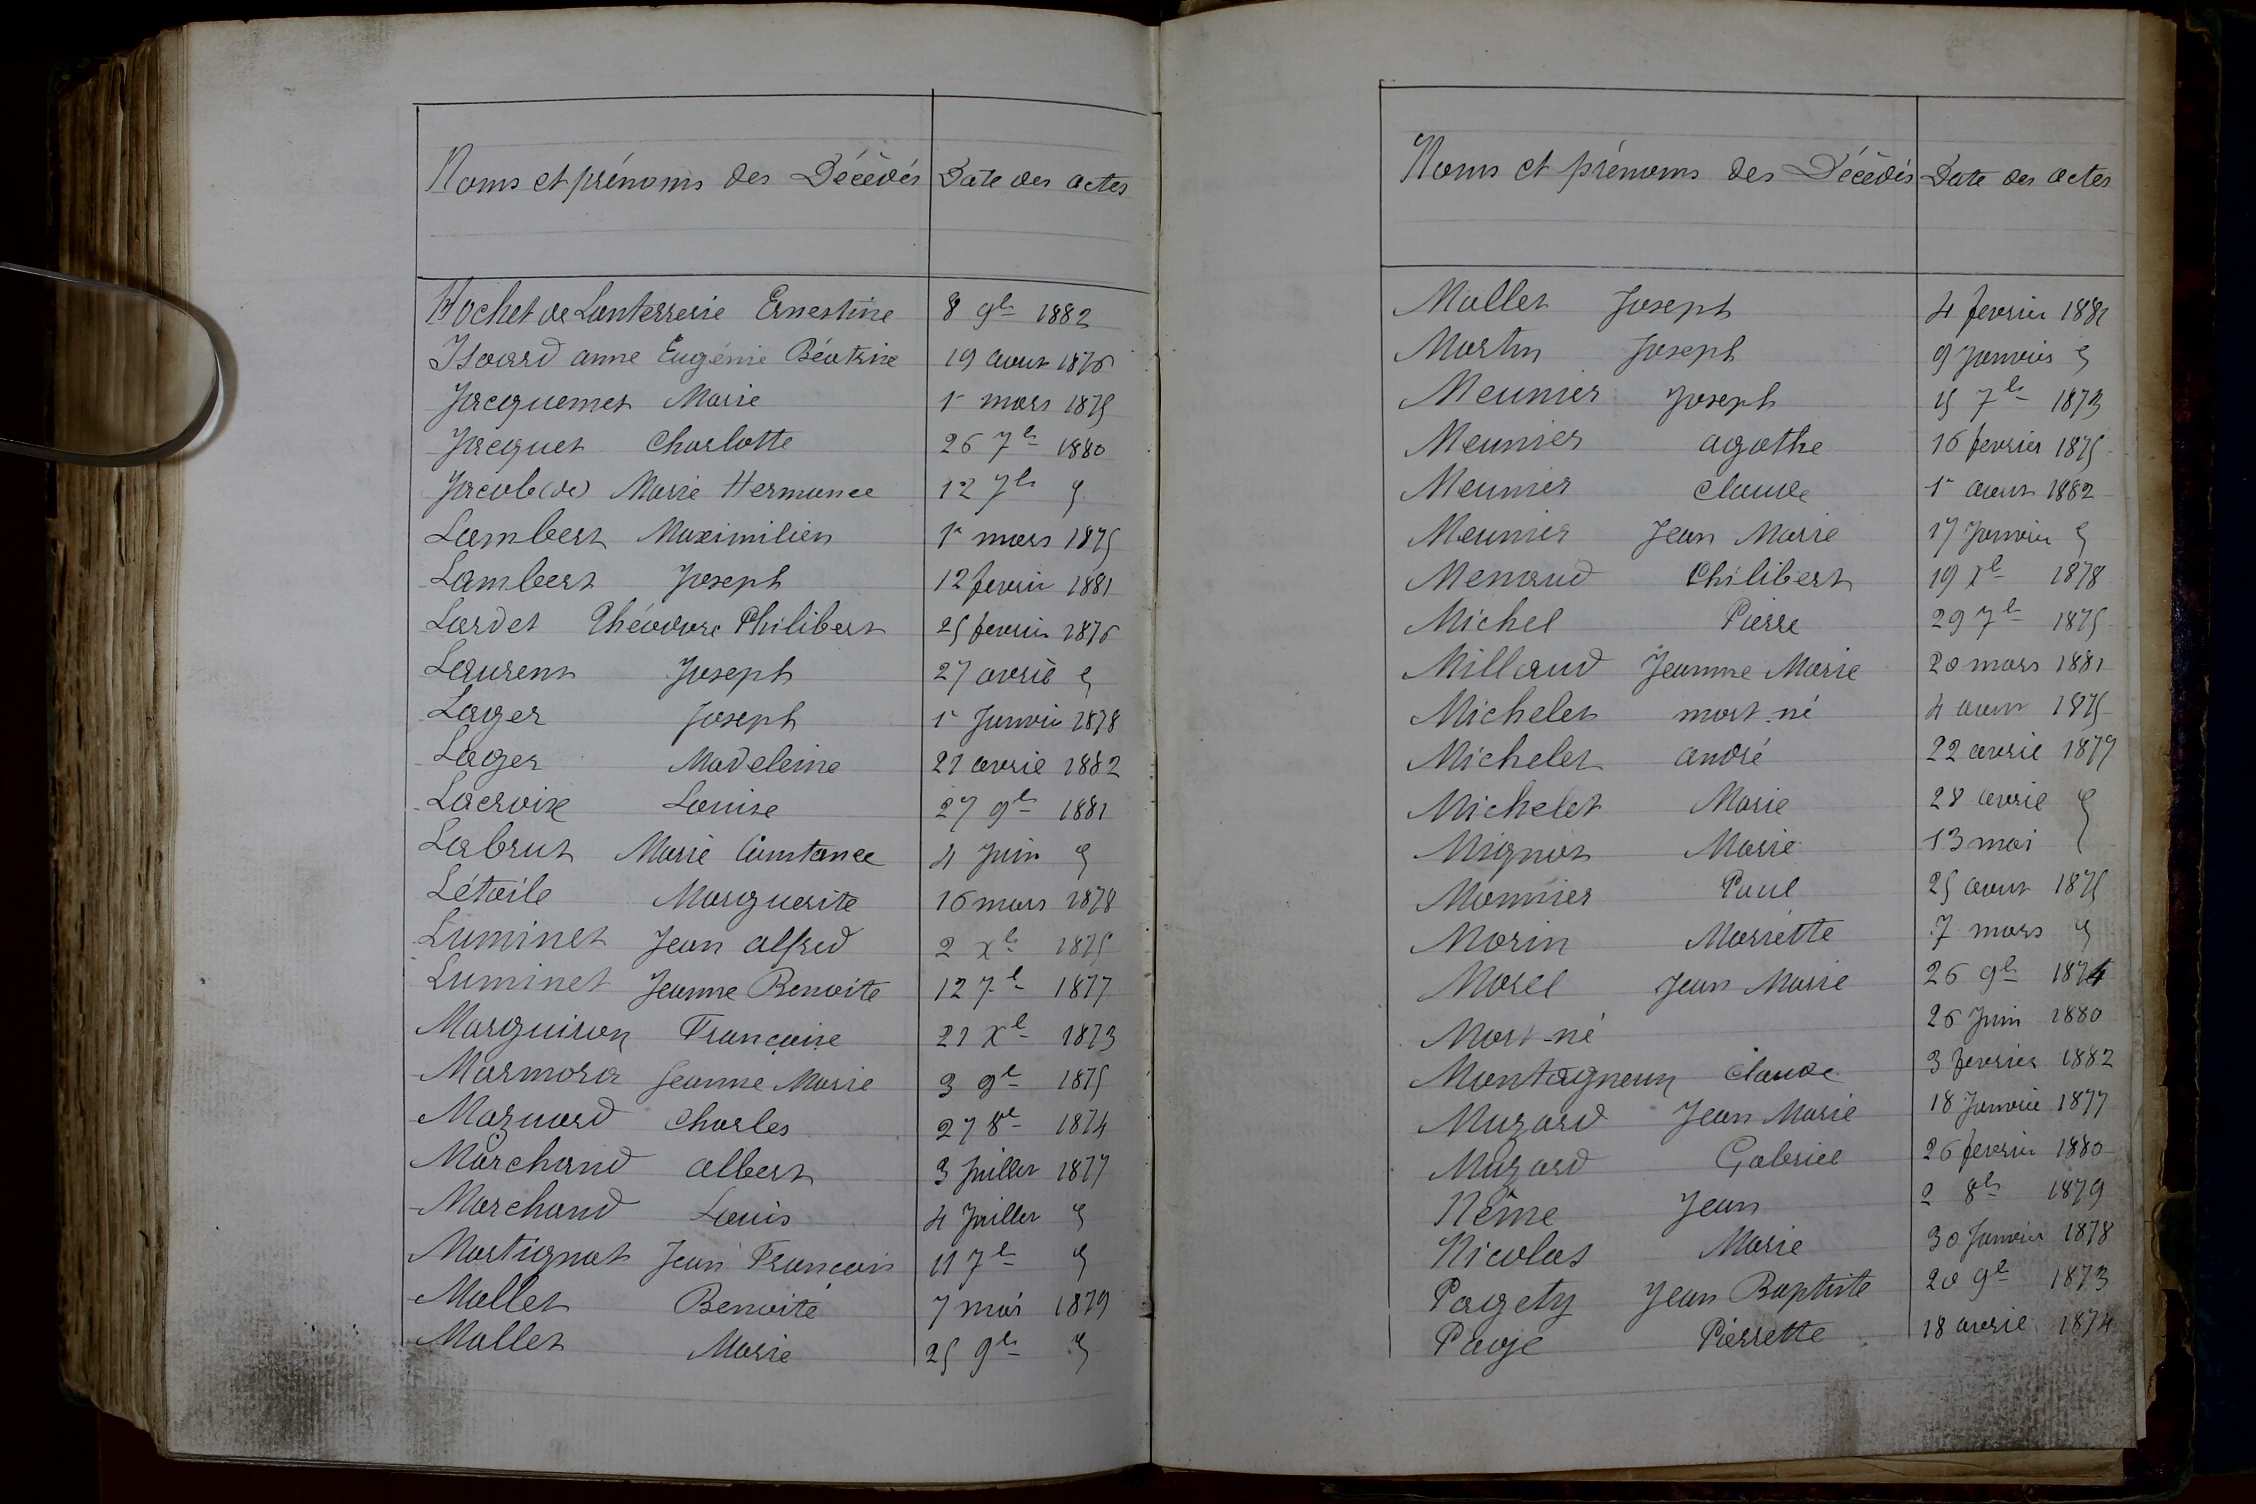 Noms et prénoms des Décédés Date des actes
Hochet de Lanterrerie Ernestine 8 9b 1882
Isoard anne Eugénie Béatrixe 19 aout 1876
Jacquemet Marie 1r mars 1875
Jacquet Charlotte 26 7b 1880
Jacob (de) Marie Hermance 12 7b "
Lambert Maximilien 1r mars 1875
Lambert Joseph 12 fevrier 1881
Lardet Théodore Philibert 25 fevrier 1876
Laurent Joseph 27 avril "
Lager Joseph 1r Janvier 1878
Lager Madeleine 21 avril 1882
Lacroix Louise 27 9b 1881
Labrut Marie Constance 4 Juin "
Létoile Marguerite 16 mars 1878
Luminet Jean alfred 2 xb 1875
Luminet Jeanne Benoite 12 7b 1877
Marguiron Françoise 21 Xb 1873
Marmora Jeanne Marie 3 9b 1875
Maznard Charles 27 8b 1874
Marchand albert 3 Juillet 1877
Marchand Louis 4 Juillet "
Martignat Jean François 11 7b "
Mallet Benoite 7 mai 1879
Mallet Marie 25 9b "
Noms et prénoms des Décédés Date des actes
Mallet Joseph 4 fevrier 1881
Martin Joseph 9 Janvier "
Meunier Joseph 15 7b 1873
Meunier agathe 16 fevrier 1875
Meunier Claude 1r aout 1882
Meunier Jean Marie 17 Janvier "
Menaud Philibert 19 xb 1878
Michel Pierre 29 7b 1875
Millaud Jeanne Marie 20 mars 1881
Michelet mort-né 4 aout 1875
Michelet andré 22 avril 1879
Michelet Marie 28 avril "
Mignot Marie 13 mai "
Monnier Paul 25 aout 1875
Morin Mariette 7 mars "
Morel Jean Marie 26 9b 1874
Mort-né 26 Juin 1880
Montagneux Claude 3 fevrier 1882
Muzard Jean Marie 18 Janvier 1877
Muzard Gabriel 26 fevrier 1880
Nême Jean 2 8b 1879
Nicolas Marie 30 Janvier 1878
Pagety Jean Baptiste 20 9b 1873
Page Pierrette 18 avril 1874